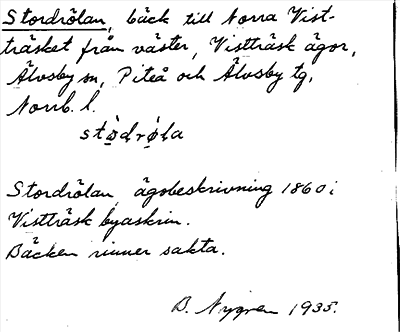 Stordrölan, bäck till Norra Vist-
träsket från väster, Vistträsk ägor,
Älvsby sn, Piteå och Älvsby tg,
Norrb. l.
stò̱drø̣̀la
Stordrölan, ägobeskrivning 1860 i
Vistträsk byaskrin.
Bäcken rinner sakta.
B. Nygren 1935.